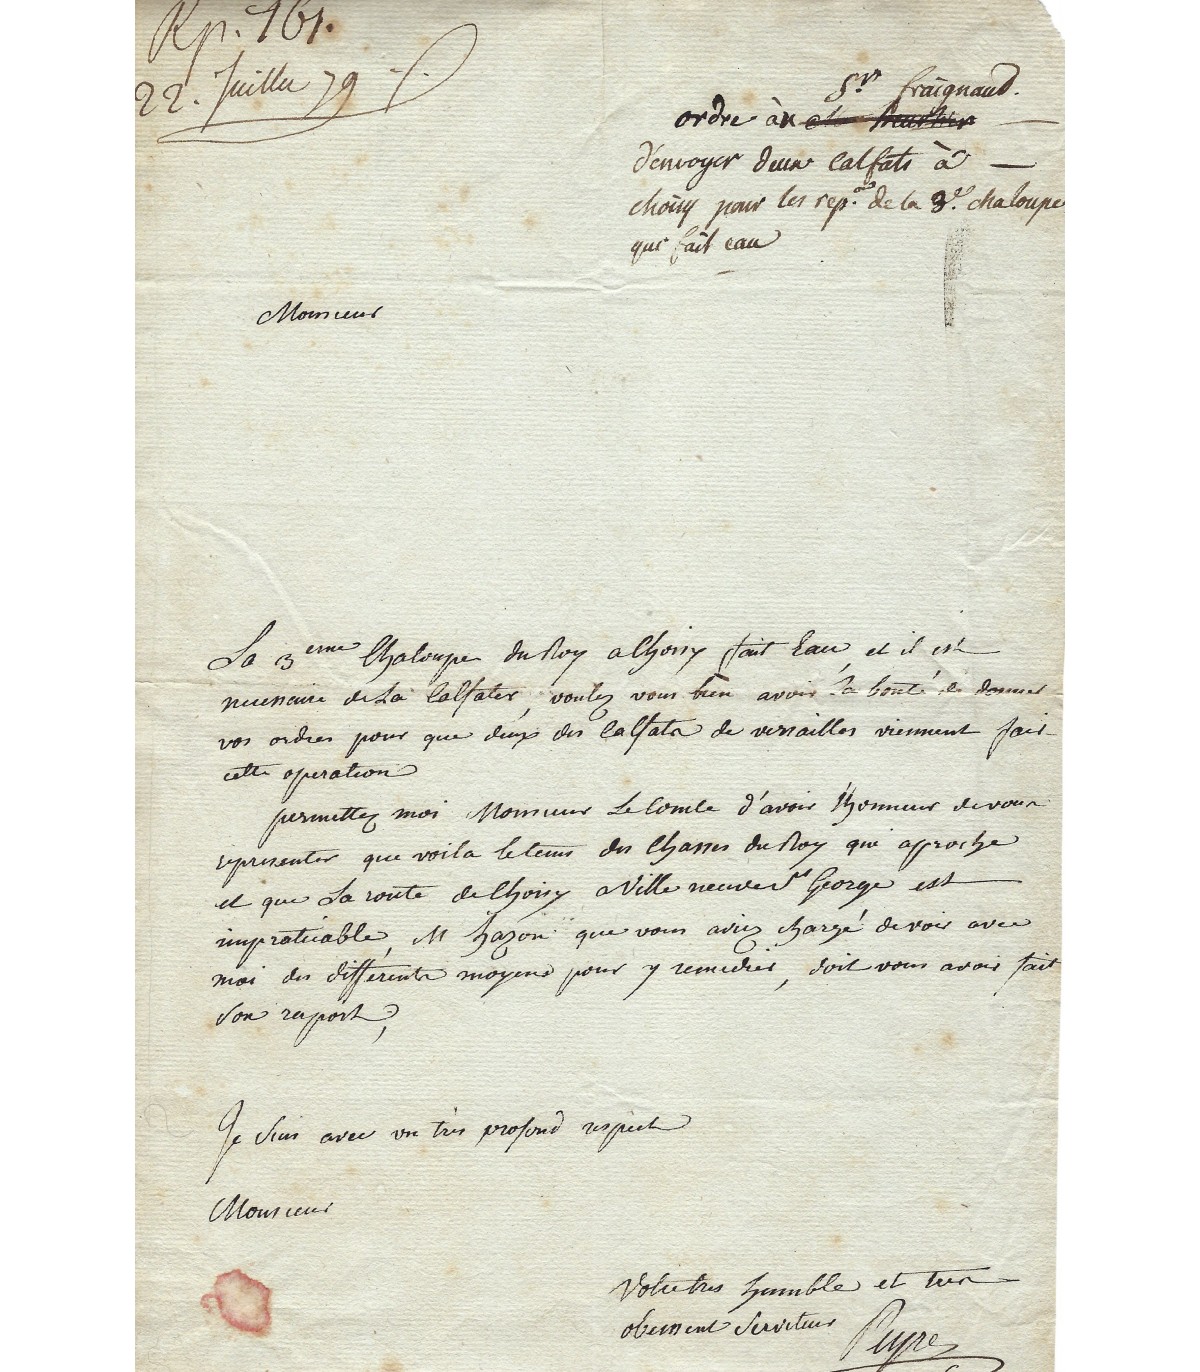 Rp. 161.
22. Juillet 79 ./.
Sr. fraignaud.
ordre au
d'envoyer deux calfats à
choisy pour les rep.ons de la 3e. chaloupe
qui fait eau
Monsieur
La 3eme Chaloupe du Roy a Choisy fait Eau, et il est
necessaire de La Calfater, voulez vous bien avoir La bonté de donner
vos ordres pour que deux des Calfats de versailles viennent fair
cette operation
permettez moi Monsieur Le Comte d'avoir l'honneur de vous
representer que voila le tems des Chasses du Roy qui aproche
et que La route de Choisy a Ville neuve St George est
impraticable, M hazon que vous aviez chargé de voir avec
moi des différents moyens pour y remedier, doit vous avoir fait
son raport,
Je suis avec un très profond respect
Monsieur
Votre tres humble et tres
obeissent Serviteur
Peyre